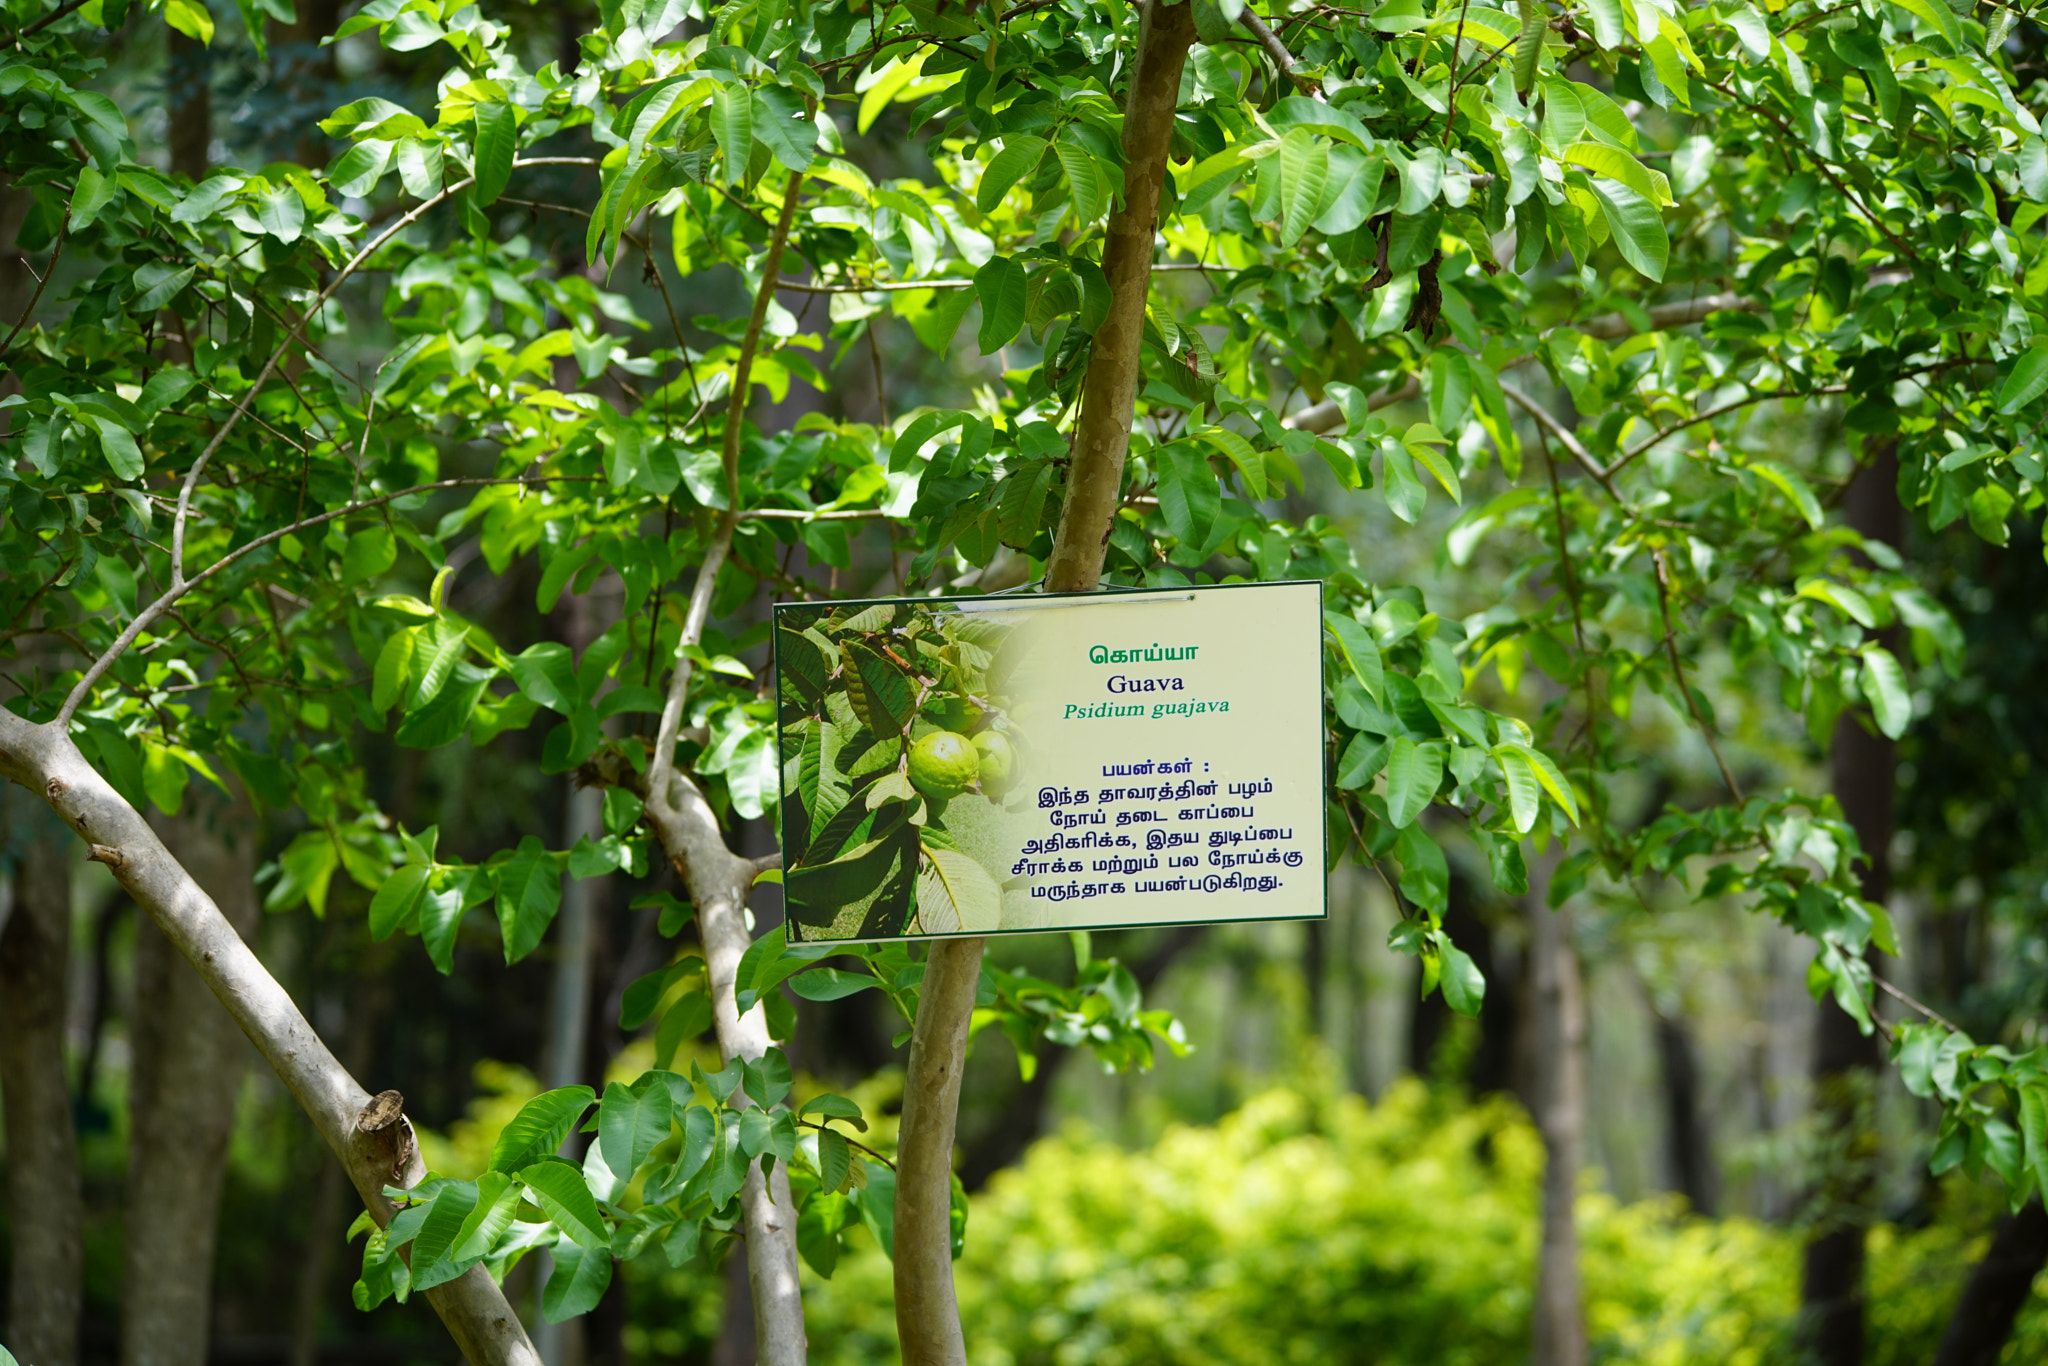 கொய்யா
Guava
Psidium guajava
பயன்கள் :
இந்த தாவரத்தின் பழம்
நோய் தடை காப்பை
அதிகரிக்க, இதய துடிப்பை
சீராக்க மற்றும் பல நோய்க்கு
மருந்தாக பயன்படுகிறது.